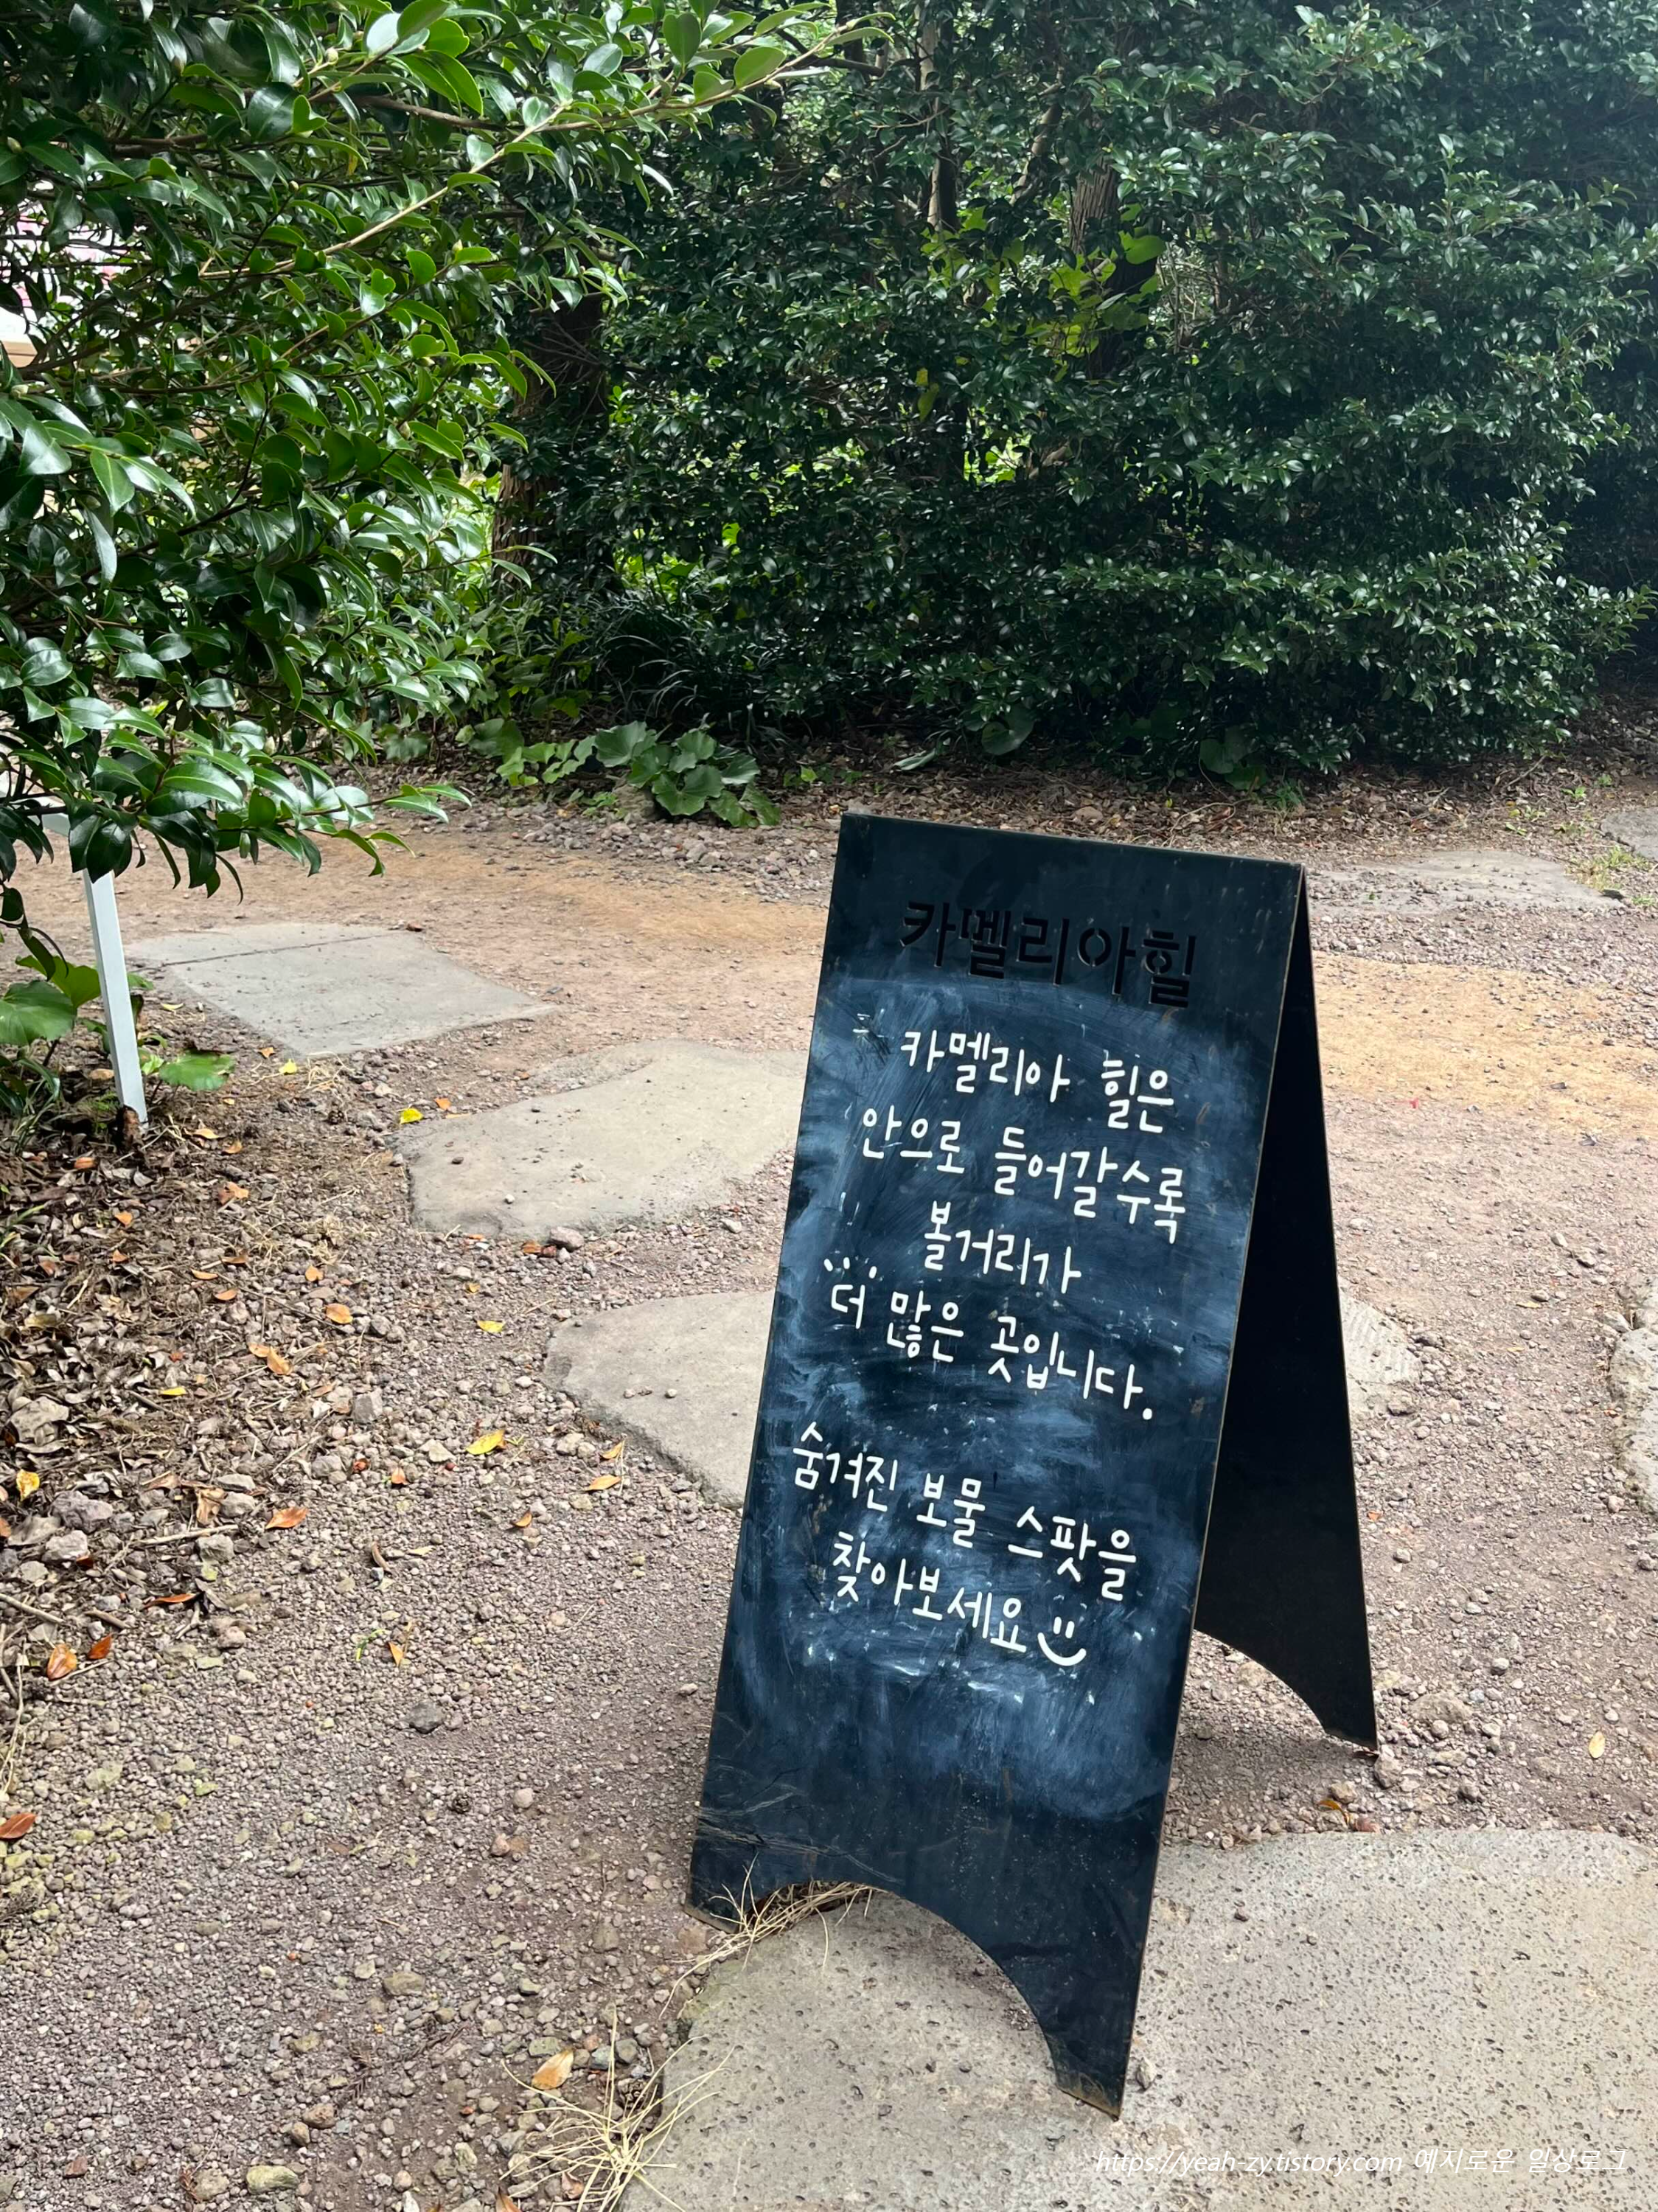 카멜리아힐
카멜리아 힐은
안으로 들어갈수록
볼거리가
더 많은 곳입니다.
숨겨진 보물 스팟을
찾아보세요
https://yeah-zy.tistory.com 예지로운 일상로그